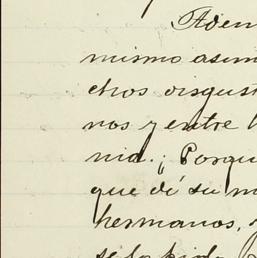 Adem
mismo asun
chos disgust
nos y entre l
nia. ¿Porqu
que dé su m
hermanos,
se lo pido